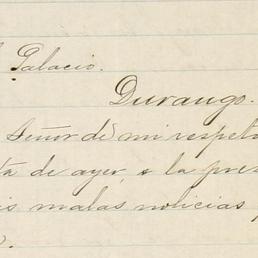 Palacio.
Durango.
Señor de mi respeto
de ayer, a la
malas noticias